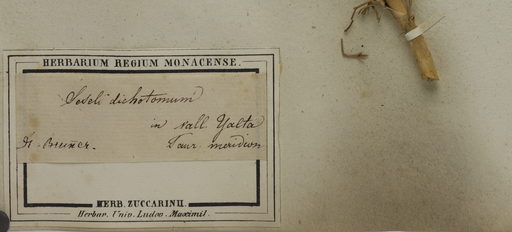 HERBARIUM REGIUM MONACENSE.
Seseli dichotomum
in vall Yalta
Taur. meridion
HERB. ZUCCARINII.
Herbar. Univ. Ludov. Maximil.